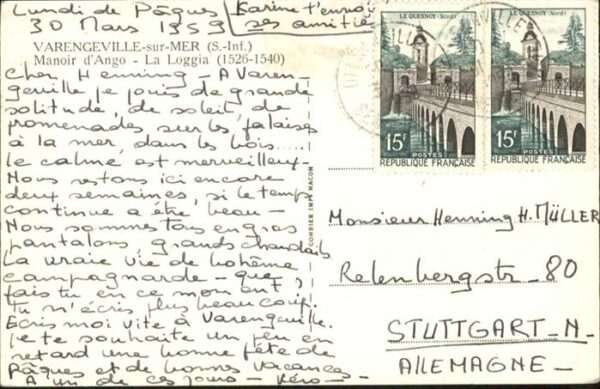 Lundi de Pâques
30 Mars 1959
Karine t'envoie
ses amitiés
VARENGEVILLE-sur-MER (S.-Inf.)
Manoir d'Ango - La Loggia (1526-1540)
Cher Henning - A Varen-
geville je jouis de grande
solitude, de soleil, de
promenades sur les falaises
à la mer, dans les bois....
le calme est merveilleux-
Nous restons ici encore
deux semaines, si le temps
continue à être beau-
Nous sommes tous en gros
pantalons, grands chandails
La vraie vie de bohème
campagnarde - que
fais tu en ce moment,
Tu n'écris plus beaucoup.
Ecris moi vite à Varengeville.
Je te souhaite un peu en
retard une bonne fête de
Pâques et de bonnes vacances
A un de ces jours - Véro -
COMBIER IMP. MACON
LE QUESNOY (Nord)
15F
POSTES
REPUBLIQUE FRANÇAISE
LE QUESNOY (Nord)
15F
POSTES
REPUBLIQUE FRANÇAISE
Monsieur Henning H. MÜLLER
Relenbergstr - 80
STUTTGART - N -
ALLEMAGNE -